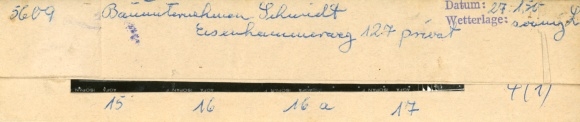 5609 Bauunternehmen Schmidt Datum: 27.1.70
Eisenhammerweg 127 privat Wetterlage: sonnig
15 16 16a 17 4(1)